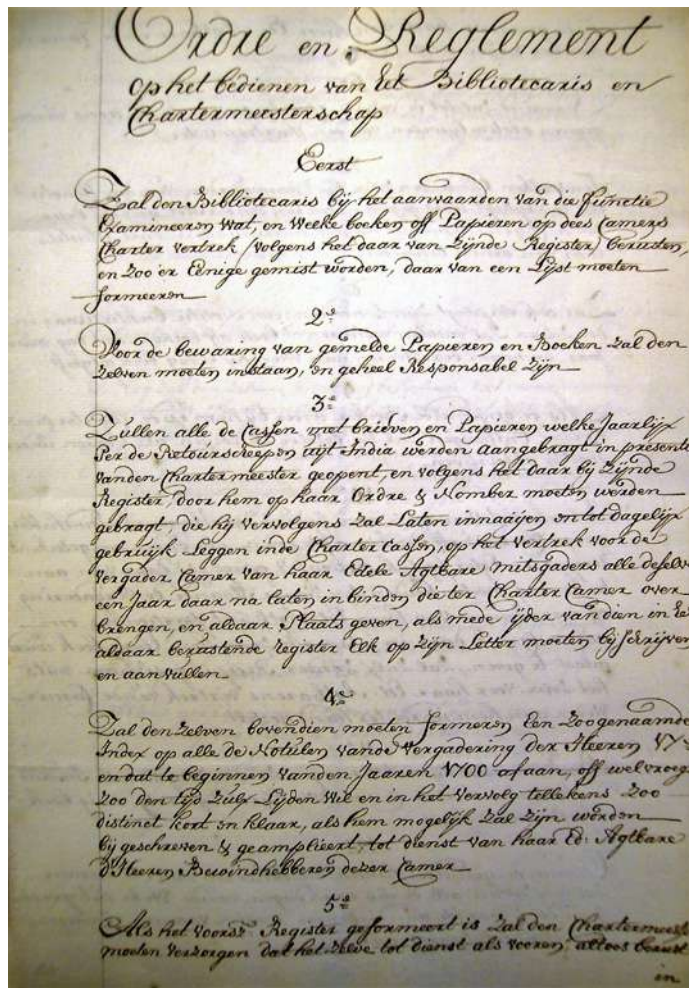 Ordre en Reglement
op het bedienen van het Bibliotecaris en
Chartermeesterschap
Eerst
Zal den Bibliotecaris bij het aanvaarden van die functie
Examineeren wat, en welke boeken off Papieren op dees Camers
Charter vertrek (volgens het daar van zijnde Register) berusten,
en zoo'er Eenige gemist worden, daar van een Lijst moeten
formeeren
2e
Voor de bewaring van gemelde Papieren en Boeken zal den
zelven moeten instaan, en geheel Responsabel zijn
3e
Zullen alle de Cassen met brieven en Papieren welke Jaarlijx
Per de Retourscheepen uijt India werden aangebragt in presentie
vanden Chartermeester geopent, en volgens het daar bij zijnde
Register, door hem op haar Ordre & Nomber moeten werden
gebragt, die hij vervolgens zal Laten innaaijen en tot dagelijx
gebruijk Leggen inde Charter Cassen, op het vertrek voor de
vergader Camer van haar Edele Agtbare mitsgaders alle deselve
een Jaar daar na laten in binden die ter Charter Camer over
brengen, en aldaar Plaats geven, als mede ijder van dien in het
aldaar berustende register Elk op zijn Letter moeten bij schrijven
en aanvullen
4e
Zal den zelven bovendien moeten formeren Een zoogenaamde
Index op alle de Notulen vande vergadering der Heeren
en dat te beginnen vanden Jaaren 1700 af aan, off wel vroeger
zoo den tijd zulx Lijden wil en in het vervolg tellekens zoo
distinct kort en klaar, als hem mogelijk zal zijn worden
bij geschreven & geamplieert, tot dienst van haar Ed: Agtbare
d'Heeren Bewindhebberen dezer Camer
5e
Als het voorsz Register geformeert is zal den Chartermeester
moeten verzorgen dat het zelve tot dienst als vooren, altoos berust
in